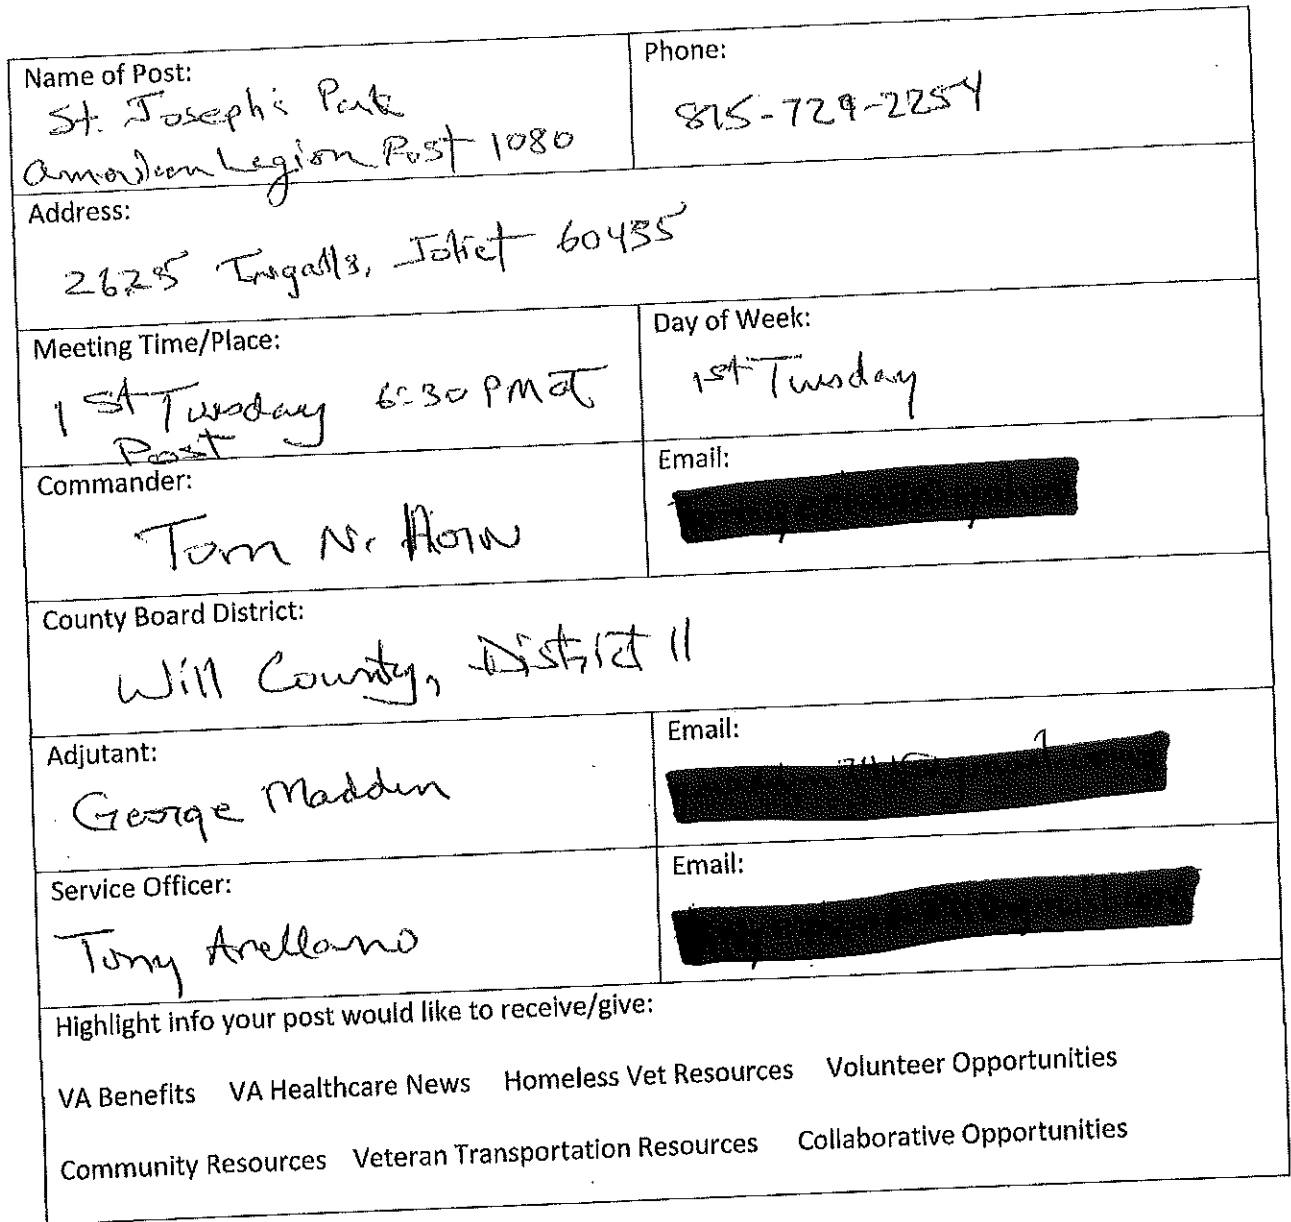 Name of Post:
St. Joseph's Park
American Legion Post 1080
Phone:
815-729-2254
Address:
2625 Ingalls, Joliet 60435
Meeting Time/Place:
1st Tuesday 6:30 PM at
Post
Day of Week:
1st Tuesday
Commander:
Tom N. Horn
Email:
County Board District:
Will County, District 11
Adjutant:
George Madden
Email:
Service Officer:
Tony Arellano
Email:
Highlight info your post would like to receive/give:
VA Benefits VA Healthcare News Homeless Vet Resources Volunteer Opportunities
Community Resources Veteran Transportation Resources Collaborative Opportunities